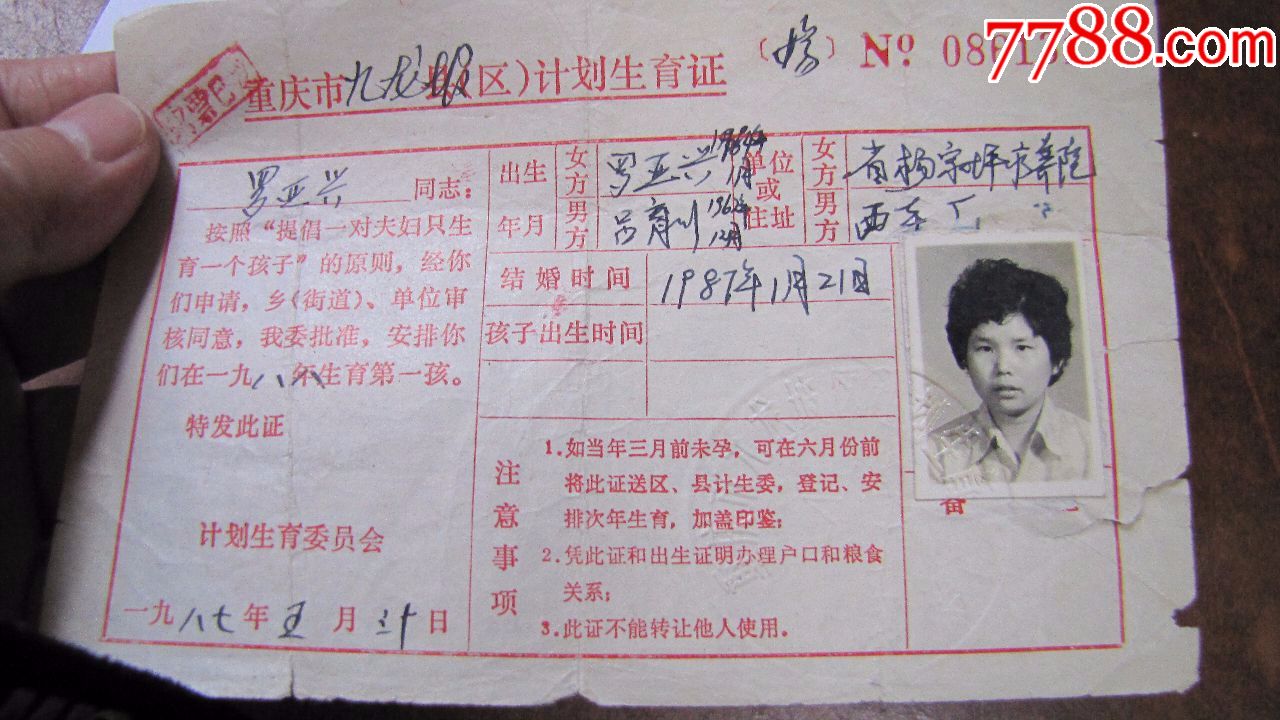 7788.com
重庆市九龙坡区)计划生育证
No 08613
罗亚兴 同志:
按照“提倡一对夫妇只生
育一个孩子”的原则,经你
们申请,乡(街道)、单位审
核同意,我委批准,安排你
们在一九八八年生育第一孩。
特发此证
计划生育委员会
一九八七年 五 月 三十 日
出生
年月
女方
罗亚兴
男方
吕育川
12月
单位或住址
女方
男方
结婚时间
1987年1月21日
孩子出生时间
注意事项
1.如当年三月前未孕,可在六月份前
将此证送区、县计生委,登记、安
排次年生育,加盖印鉴;
2.凭此证和出生证明办理户口和粮食
关系;
3.此证不能转让他人使用。
备